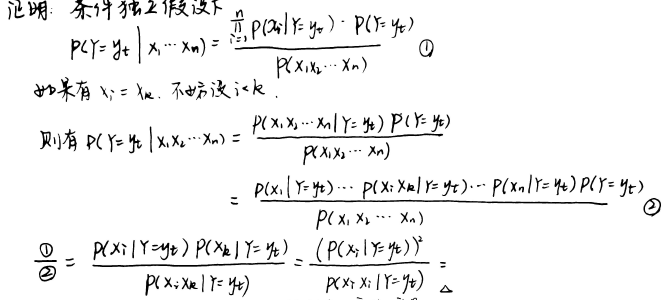 证明: 条件独立假设下
P(Y=y_t | x_1 ⋯ x_n) = \frac{\prod_{i=1}^{n} P(x_i|Y=y_t) · P(Y=y_t)}{P(x_1x_2 ⋯ x_n)} ①
如果有 x_i = x_k. 不妨设 i<k.
则有 P(Y=y_t | x_1x_2⋯x_n) = \frac{P(x_1x_2⋯x_n|Y=y_t) P(Y=y_t)}{P(x_1x_2⋯x_n)}
= \frac{P(x_1|Y=y_t)⋯P(x_ix_k|Y=y_t)⋯P(x_n|Y=y_t)P(Y=y_t)}{P(x_1x_2⋯x_n)} ②
\frac{①}{②} = \frac{P(x_i|Y=y_t)P(x_k|Y=y_t)}{P(x_ix_k|Y=y_t)} = \frac{(P(x_i|Y=y_t))^2}{P(x_ix_i|Y=y_t)} =